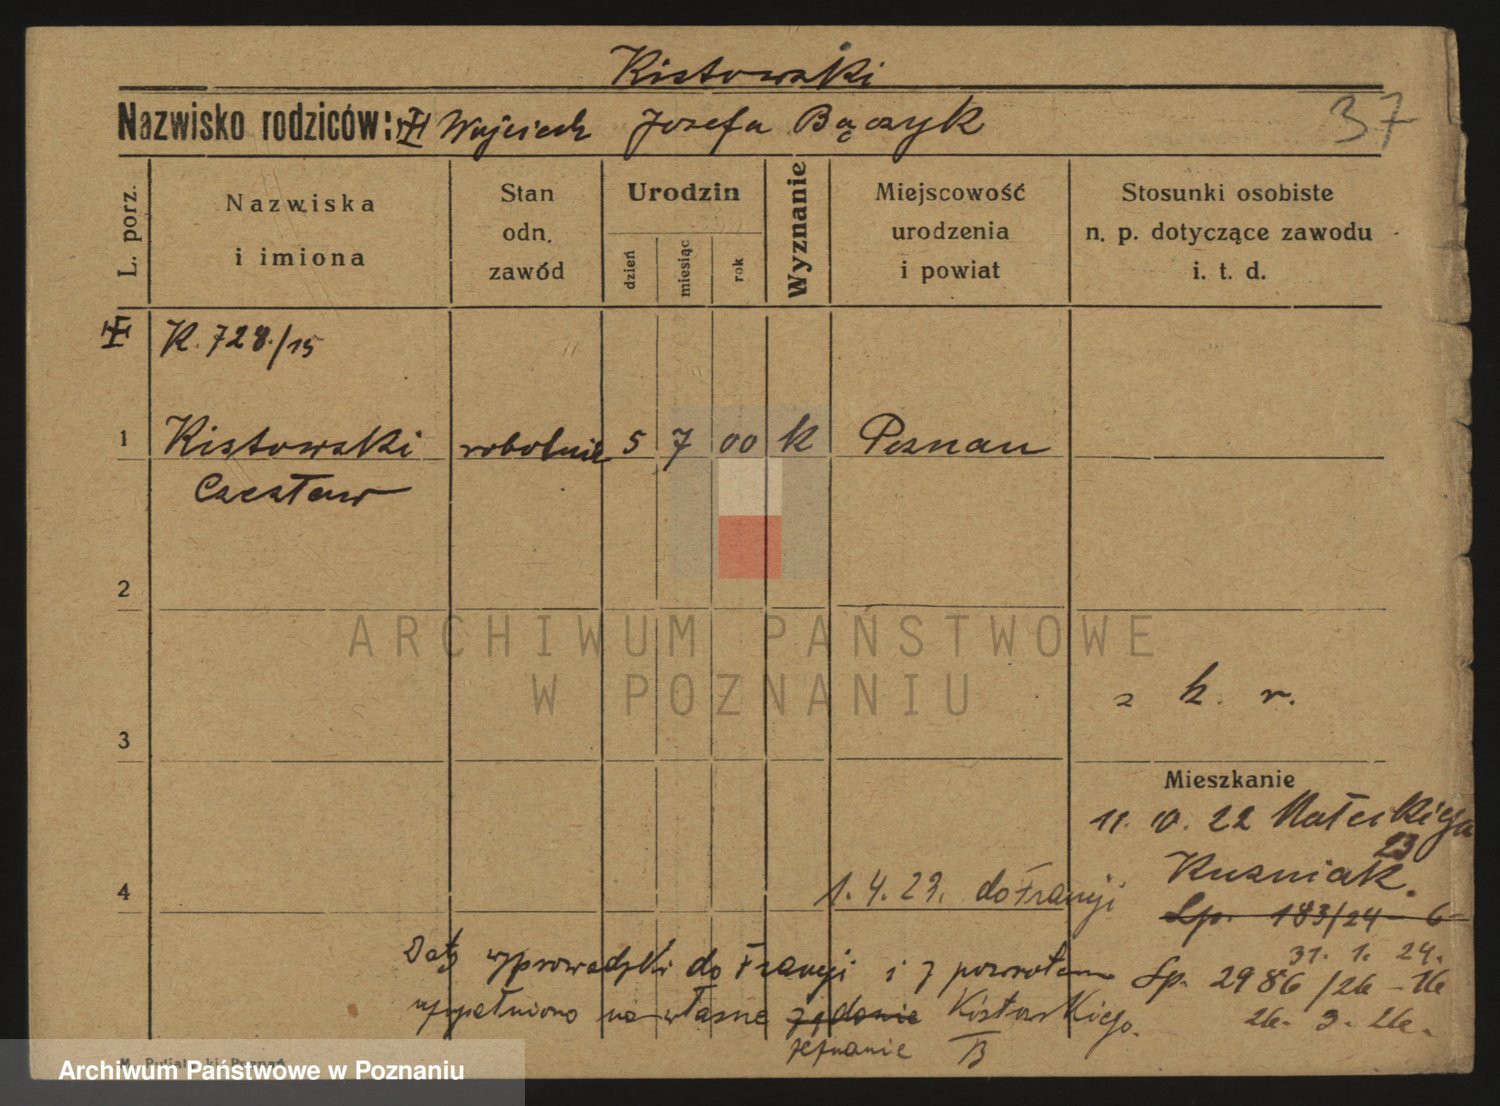 Kistowski
Nazwisko rodziców: Wojciech Józefa Bączyk
37
L. porz.
Nazwiska
i imiona
Stan
odn.
zawód
Urodzin
dzień
miesiąc
rok
Wyznanie
Miejscowość
urodzenia
i powiat
Stosunki osobiste
n. p. dotyczące zawodu
i. t. d.
K. 728./15
1 Kistowski robotnik 5 7 00 k Poznan
Czesław
2
ARCHIWUM PAŃSTWOWE
W POZNANIU
z k. r.
3
Mieszkanie
11. 10. 22 Małeckiego
23
Kuzniak.
4
1. 4. 23. do Francji
Lp. 183/24 - 6
31. 1. 24.
Daty wyprowadzki do Francji i z powrotem
Lp. 2986/26 - 16
uzupełniono na własne żądanie Kistowskiego.
26. 3. 26.
zeznanie
M. Putiatycki Poznań
Archiwum Państwowe w Poznaniu